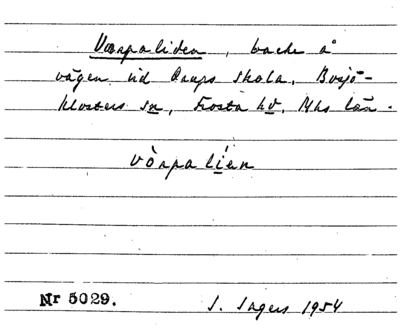 Vårpaliden, backe å
vägen vid Orups skola, Bosjö-
klosters sn, Frosta hd, Mhs län.
vòrpa lien
Nr 5029.
I. Ingers 1954